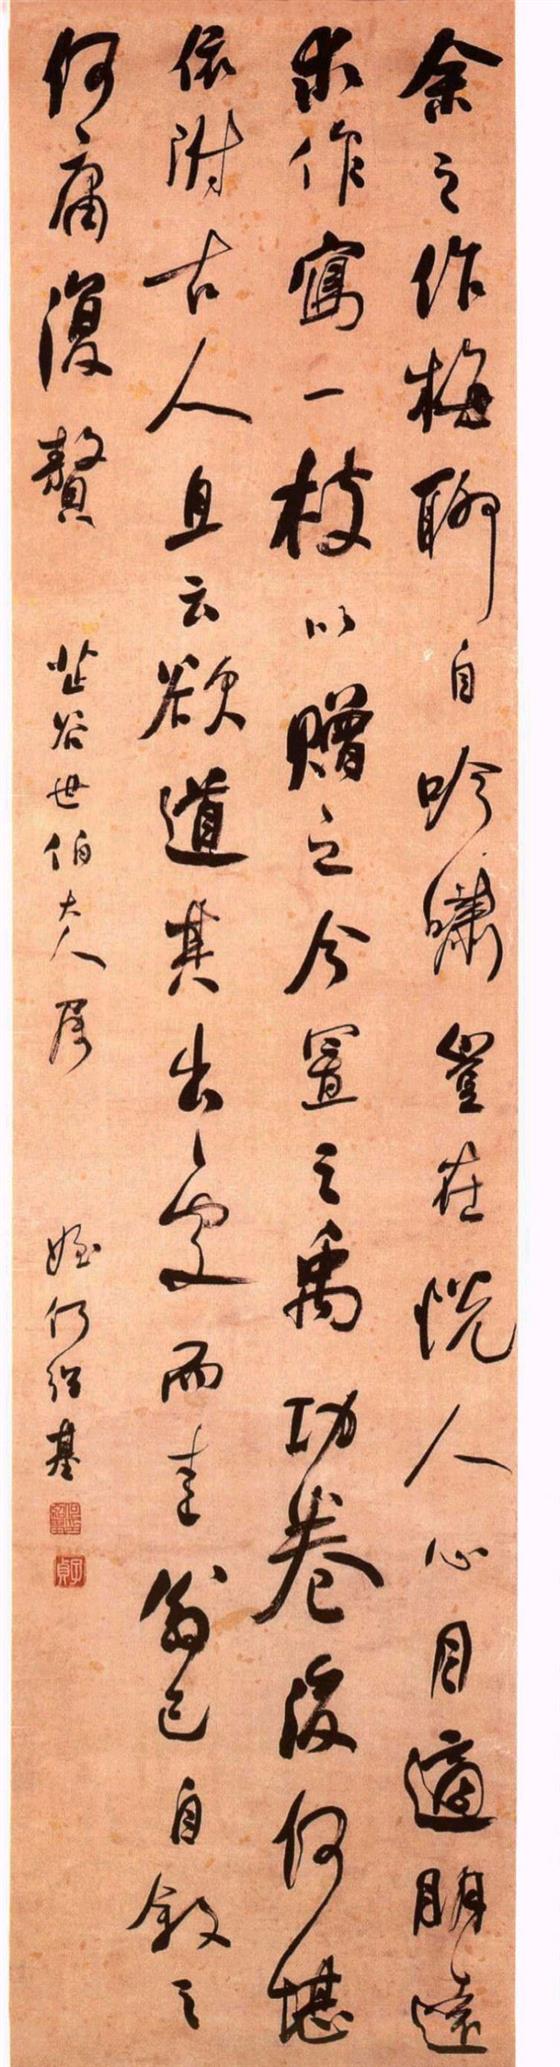 余之作梅聊自吟啸豈在悦人心目適明遠
求作寫一枝以贈之今置之禹功卷後何堪
依附古人且云欲道其出處而逹翁已自叙之
何庸復贅
芷谷世伯大人属
姪何紹基